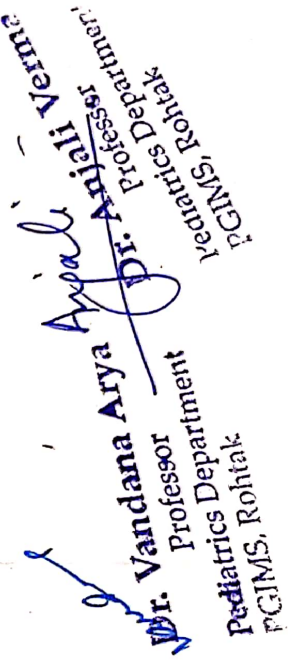 Dr. Vandana Arya
Professor
Pediatrics Department
PGIMS, Rohtak
Anjali
Dr. Anjali Verma
Professor
Pediatrics Department
PGIMS, Rohtak